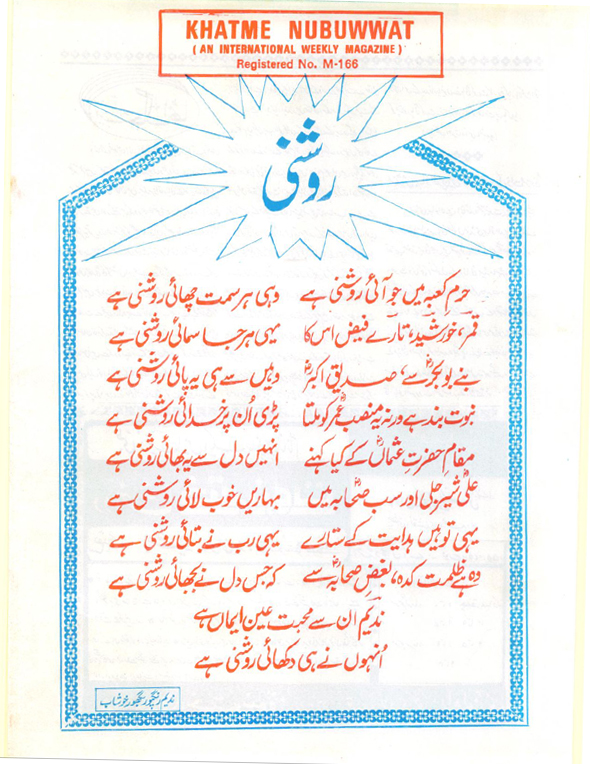 KHATME NUBUWWAT
(AN INTERNATIONAL WEEKLY MAGAZINE)
Registered No. M-166
روشنی
حرمِ کعبہ میں جو آئی روشنی ہے وہی ہر سمت چھائی روشنی ہے
قمر، خورشید، تارے فیض اس کا یہی ہر جا سمائی روشنی ہے
بنے بوبکرؓ سے، صدیقِ اکبرؓ وہیں سے ہی یہ پائی روشنی ہے
نبوت بند ہے ورنہ یہ منصب عمرؓ کو ملتا پڑی اُن پر خدائی روشنی ہے
مقامِ حضرتِ عثماںؓ کے کیا کہنے انہیں دل سے یہ بھائی روشنی ہے
علیؓ شیرِ جلی اور سب صحابہؓ میں بہاریں خوب لائی روشنی ہے
یہی تو ہیں ہدایت کے ستارے یہی رب نے بتائی روشنی ہے
وہ ہے ظلمت کدہ، بغضِ صحابہؓ سے کہ جس دل نے بجھائی روشنی ہے
ندیم ان سے محبت عین ایماں ہے
اُنہوں نے ہی دکھائی روشنی ہے
ندیم خوشاب